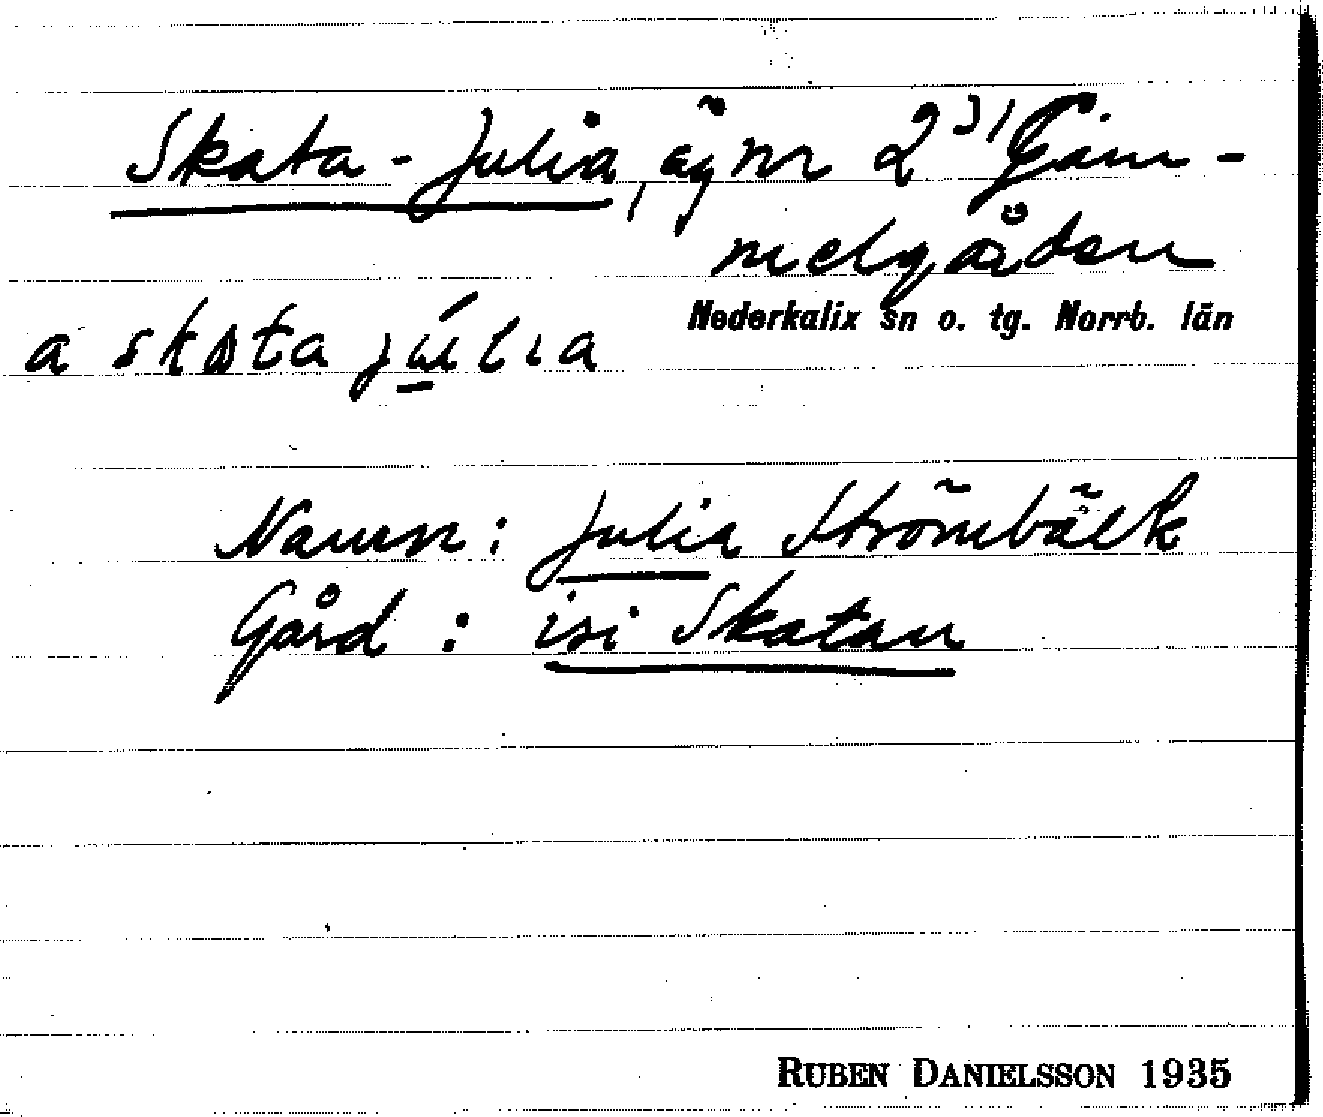 Skata-Julia, äg nr 2³¹ Gam-
melgården
Nederkalix sn o. tg. Norrb. län
a skata júlia
Namn: Julia Strömbäck
Gård: isi Skatan
RUBEN DANIELSSON 1935